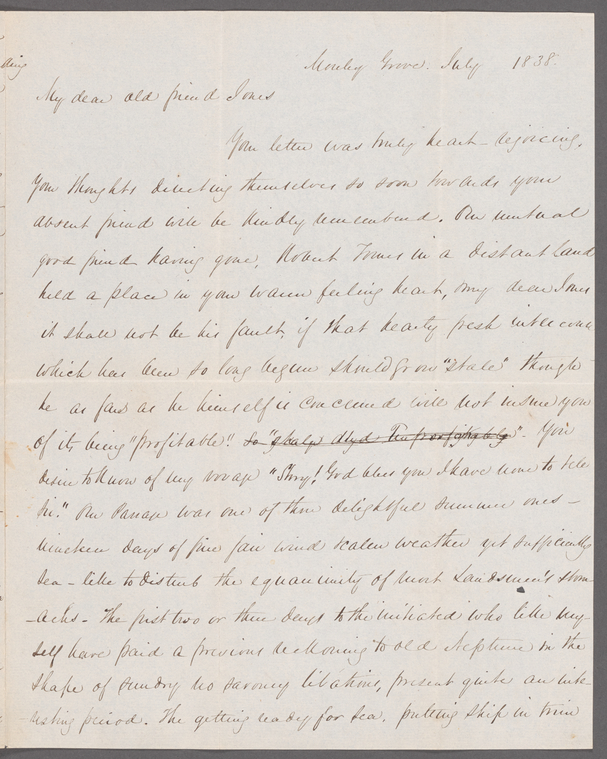 ding
Mosely Grove. July 1838.
My dear old friend Jones
Your letter was truly heart-rejoicing.
Your thoughts directing themselves so soon towards your
absent friend will be kindly remembered. Our mutual
good friend having gone, Robert Tomes in a distant Land
held a place in your warm feeling heart, my dear Jones
it shall not be his fault, if that hearty fresh intercourse
which has been so long begun should grow "stale" though
he as far as he himself is concerned will not insure you
of its being "profitable"! So "stale and unprofitable". You
desire to know of my voyage "Story! God bless you I have none to tell
Sir." Our Passage was one of those delightful summer ones -
nineteen days of fine fair wind calm weather yet sufficiently
sea-like to disturb the equanimity of most Landsmen's stom-
-achs. The first two or three days to the initiated who like my-
self have paid a previous reckoning to old Neptune in the
shape of sundry no savoury libations, present quite an inte-
resting period. The getting ready for sea. putting ship in trim